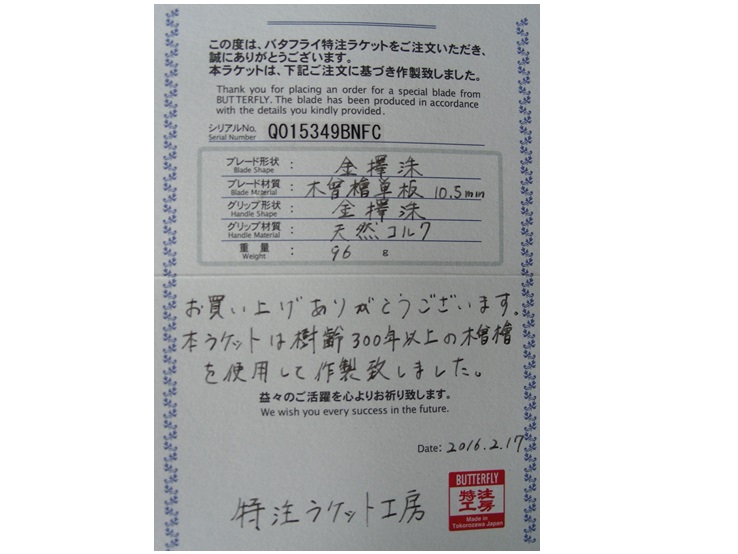 この度は、バタフライ特注ラケットをご注文いただき、
誠にありがとうございます。
本ラケットは、下記ご注文に基づき作製致しました。
Thank you for placing an order for a special blade from
BUTTERFLY. The blade has been produced in accordance
with the details you kindly provided.
シリアルNo. Serial Number Q015349BNFC
ブレード形状 Blade Shape : 金擇洙
ブレード材質 Blade Material : 木曾檜単板 10.5mm
グリップ形状 Handle Shape : 金擇洙
グリップ材質 Handle Material : 天然コルク
重量 Weight : 96 g
お買い上げありがとうございます.
本ラケットは樹齢300年以上の木曾檜
を使用して作製致しました。
益々のご活躍を心よりお祈り致します。
We wish you every success in the future.
Date: 2016.2.17
特注ラケット工房
BUTTERFLY
特注
工房
Made in
Tokorozawa Japan